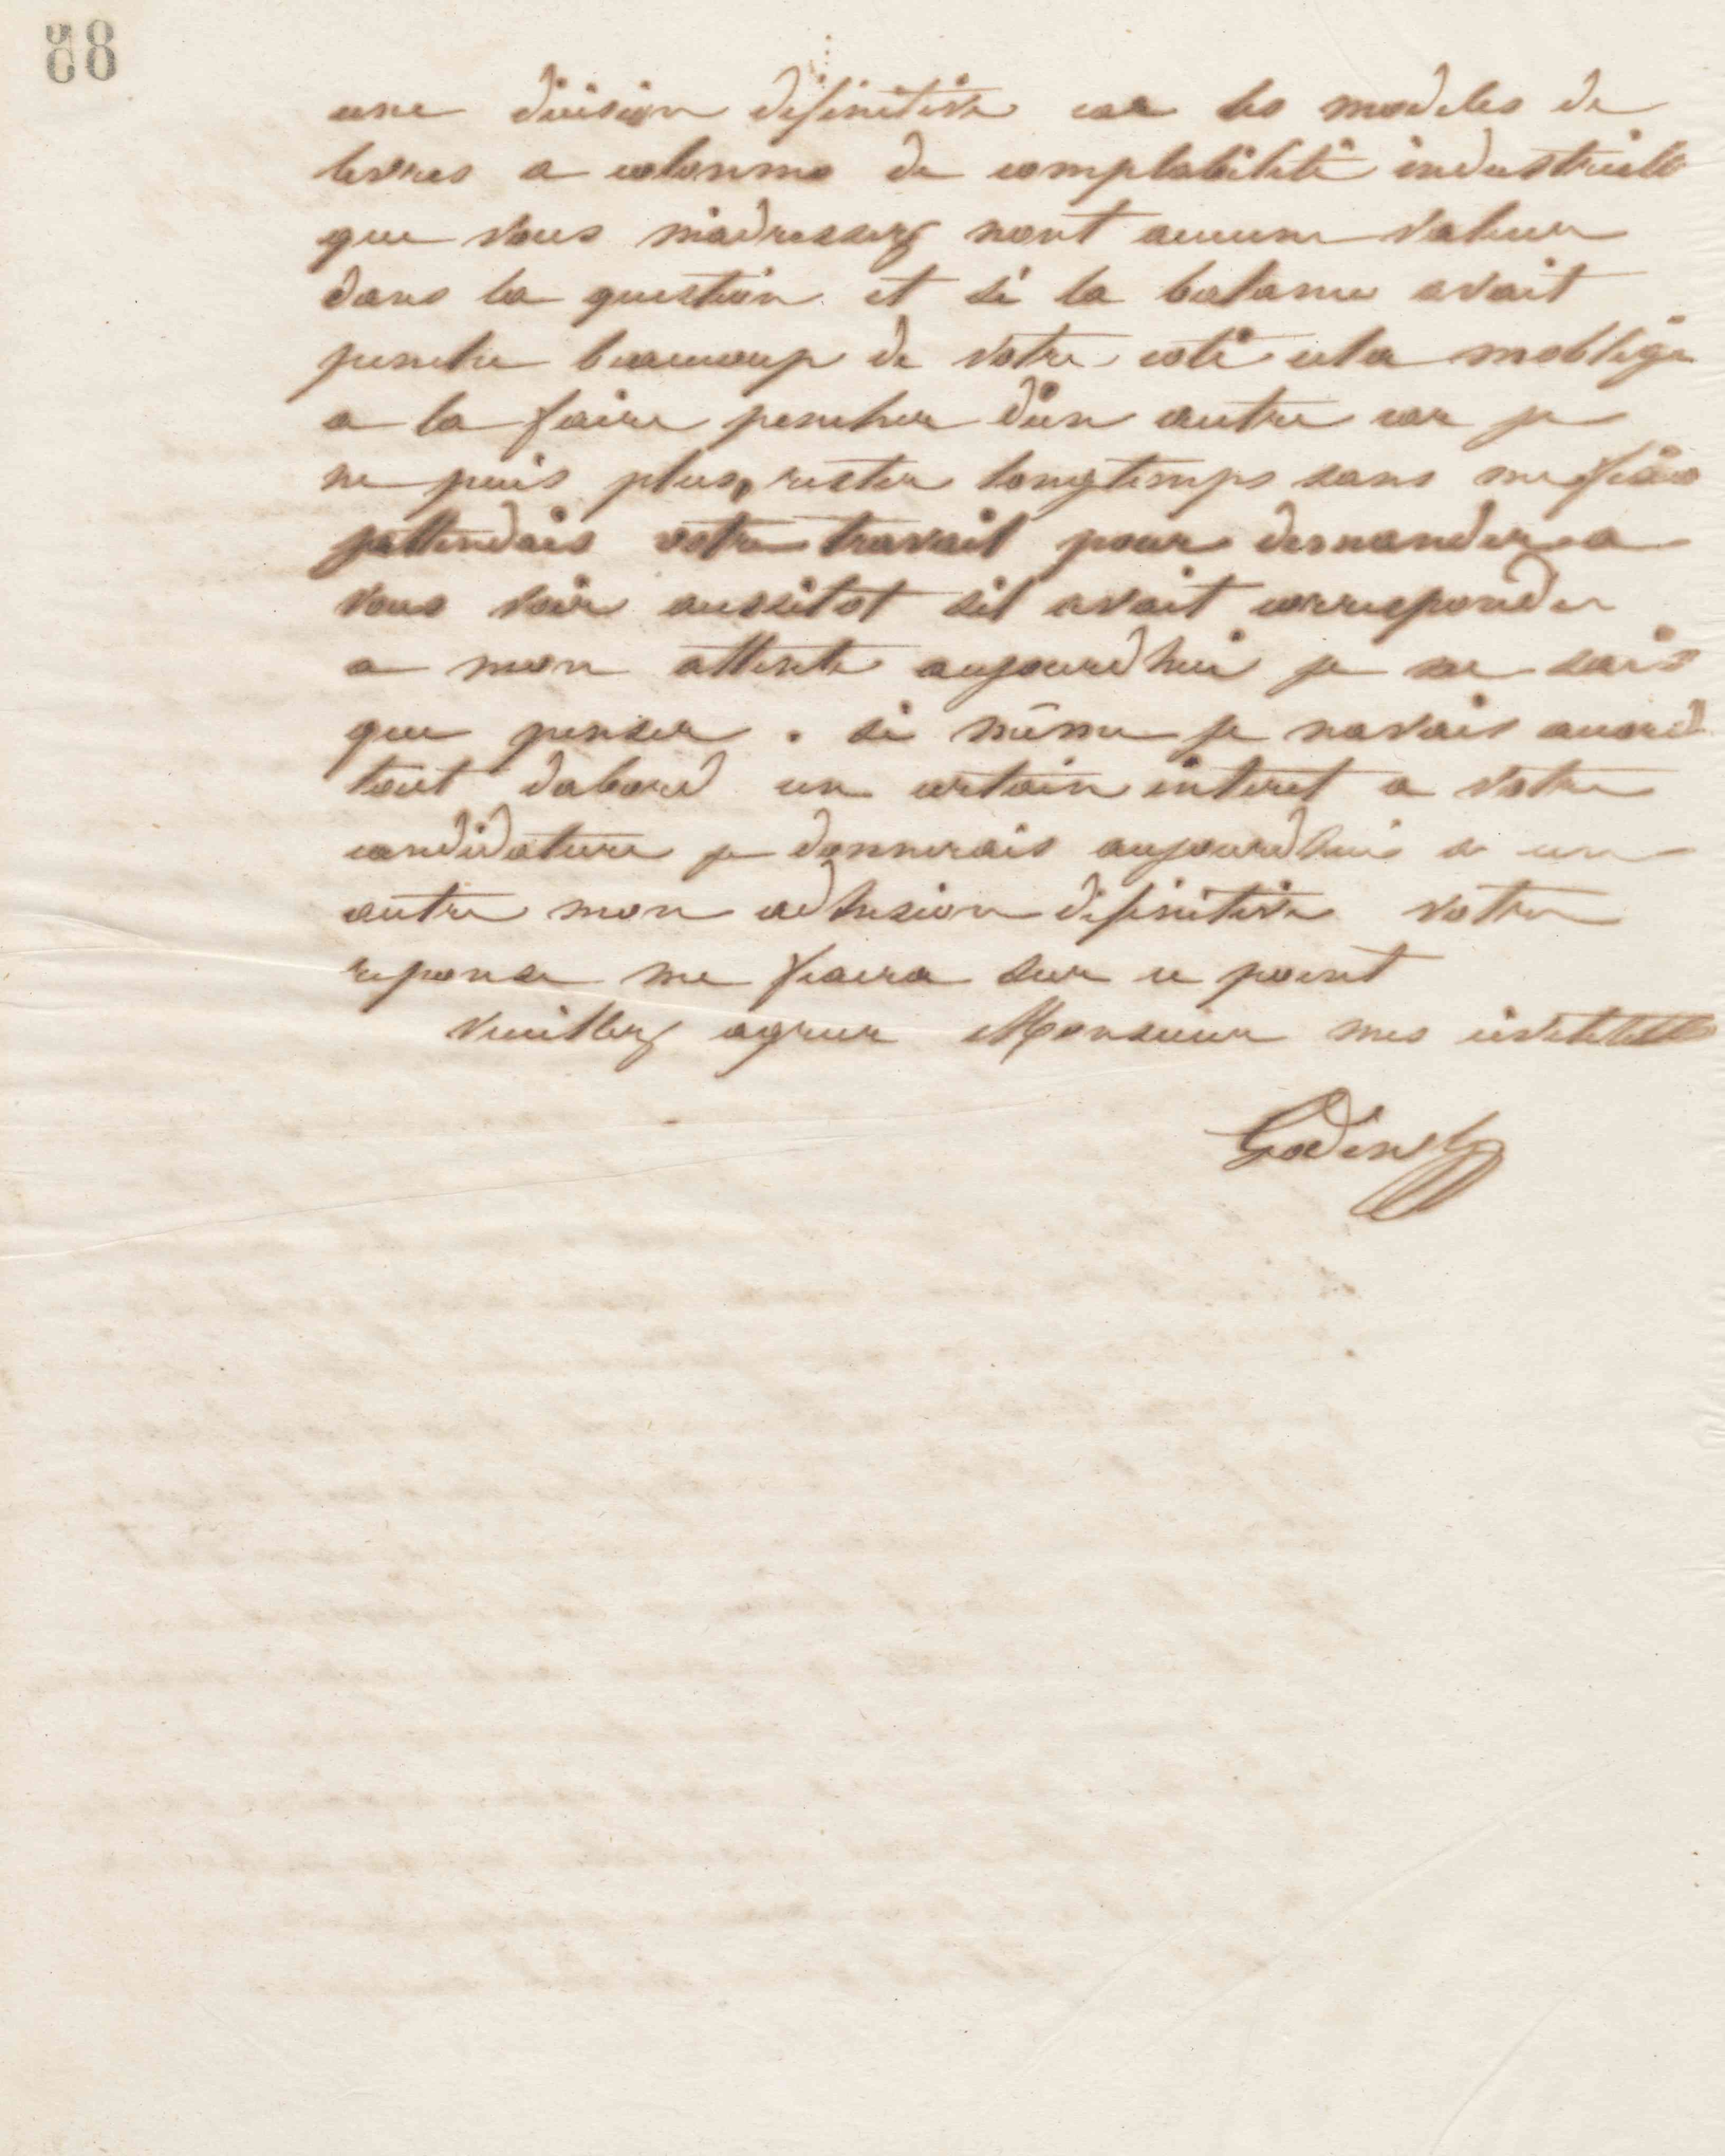 58
une décision définitive car les modeles de
livres a colonnes de comptabilité industrielle
que vous m'adressez n'ont aucune valeur
dans la question et si la balance avait
penché beaucoup de votre coté cela m'oblige
a la faire pencher d'un autre car je
ne puis plus rester longtemps sans me fixer
jattendais votre travail pour demander a
vous voir aussitot sil avait correspondu
a mon attente aujourdhui je ne sais
que penser . si même je navais accordé
tout dabord un certain interet a votre
candidature je donnerais aujourdhui a un
autre mon adhesion définitive votre
reponse me fixera sur ce point
Veuillez agreer Monsieur mes civilités
Godin